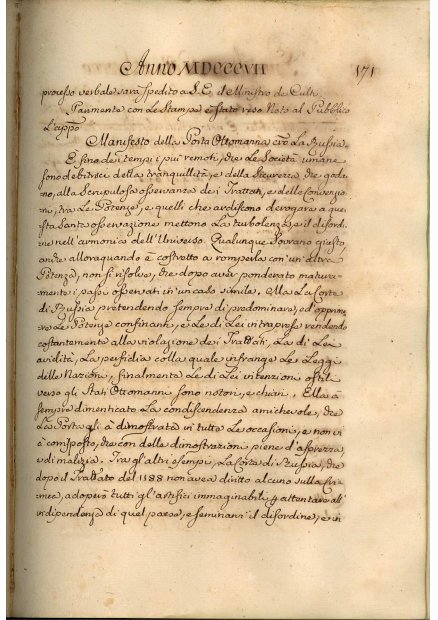 Anno MDCCCVII 171
processo verbale sarà spedito a S. E. il Ministro de Culti.
Parimente con le Stampe è stato reso Noto al Pubblico
L'appõ
Manifesto della Porta Ottomanna cõro La Russia
E sino dei tempi i più remoti, che le Società umane
sono debitrici della tranquillità, e della Sicurezza che godo
no, alla Scrupulosa osservanza dei Trattati, e delle Convenzio
ni, tra Le Potenze, e quelli che ardiscono derogare a que
sta Santa osservazione mettono La turbolenza, e il disordi
ne nell'armonia dell'Universo. Qualunque Sovrano giusto
anche allora quando è costretto a romperla con un'altra
Potenza, non si risolve, che dopo aver ponderato matura
mente i passi osservati in un caso simile. Ma La Corte
di Russia pretendendo sempre di predominare, ed opprime
re Le Potenze confinanti, e Le di Lei intraprese rendendo
costantemente alla violazione dei Trattati, La di Lei
avidità, La perfidia colla quale infrange Le Leggi
delle Nazioni, finalmente Le di Lei intenzioni ostili
verso gli Stati Ottomanni sono notori, e chiari. Ella à
sempre dimenticato La condiscendenza amichevole, che
La Porta gli à dimostrata in tutte Le occasioni, e non vi
à corrisposto, che con delle dimostrazioni piene d'asprezza,
e di malizia. Tra gl'altri esempi, La Corte di Russia, che
dopo il Trattato del 1188 non avea diritto alcuno sulla Cri
mea, adoperò tutti gl'artifizi immaginabili p attentare all'
indipendenza di quel paese, e seminarvi il disordine, e in